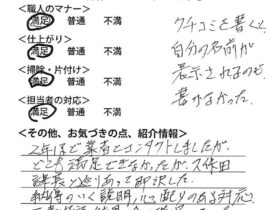 <職人のマナー>
満足 普通 不満
<仕上がり>
満足 普通 不満
<掃除・片付け>
満足 普通 不満
<担当者の対応>
満足 普通 不満
クチコミを書くと、
自分の名前が
表示されるので、
書かなかった。
<その他、お気づきの点、紹介情報>
2年ほど業者とコンタクトしましたが、
どこも満足できなかったが、久保田
課長と巡りあって即決した。
納得のいく説明、心配りのある対応、